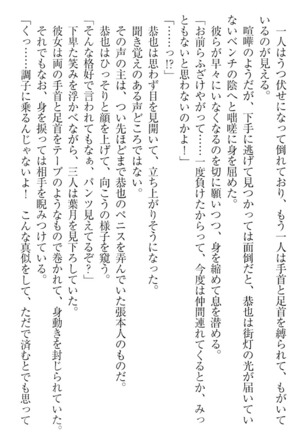 一人はうつ伏せになって倒れており、もう一人は手首と足首を縛られて
いるのが見える。
喧嘩のようだが、下手に逃げて見つかっては面倒だと、恭也は街灯の光が届いてい
ないベンチの陰へと咄嗟に身を屈めた。
彼らが早々にいなくなるのを切に願いつつ、身を縮めて息を潜める。
「お前らふざけやがって……一度負けたからって、今度は仲間連れてくるとか、みっ
ともないと思わないのかよ！」
「……っ!?」
恭也は思わず目を見開いて、立ち上がりそうになった。
聞き覚えのある声どころではない。
その声の主は、つい先ほどまで恭也のペニスを弄んでいた張本人のものだ。
恭也はひっそりと顔を上げて、向こうの様子を窺う。
「そんな格好で言われてもなぁ、パンツ見えてるぞ？」
下卑た笑みを浮かべながら、三人は葉月を見下ろしていた。
彼女は両の手首と足首をテープのようなもので巻かれて、身動きを封じられていた。
それでもなお、身を捩っては相手を睨みつけている。
「くっ……調子に乗るんじゃないよ！　こんな真似をして、ただで済むとでも思って